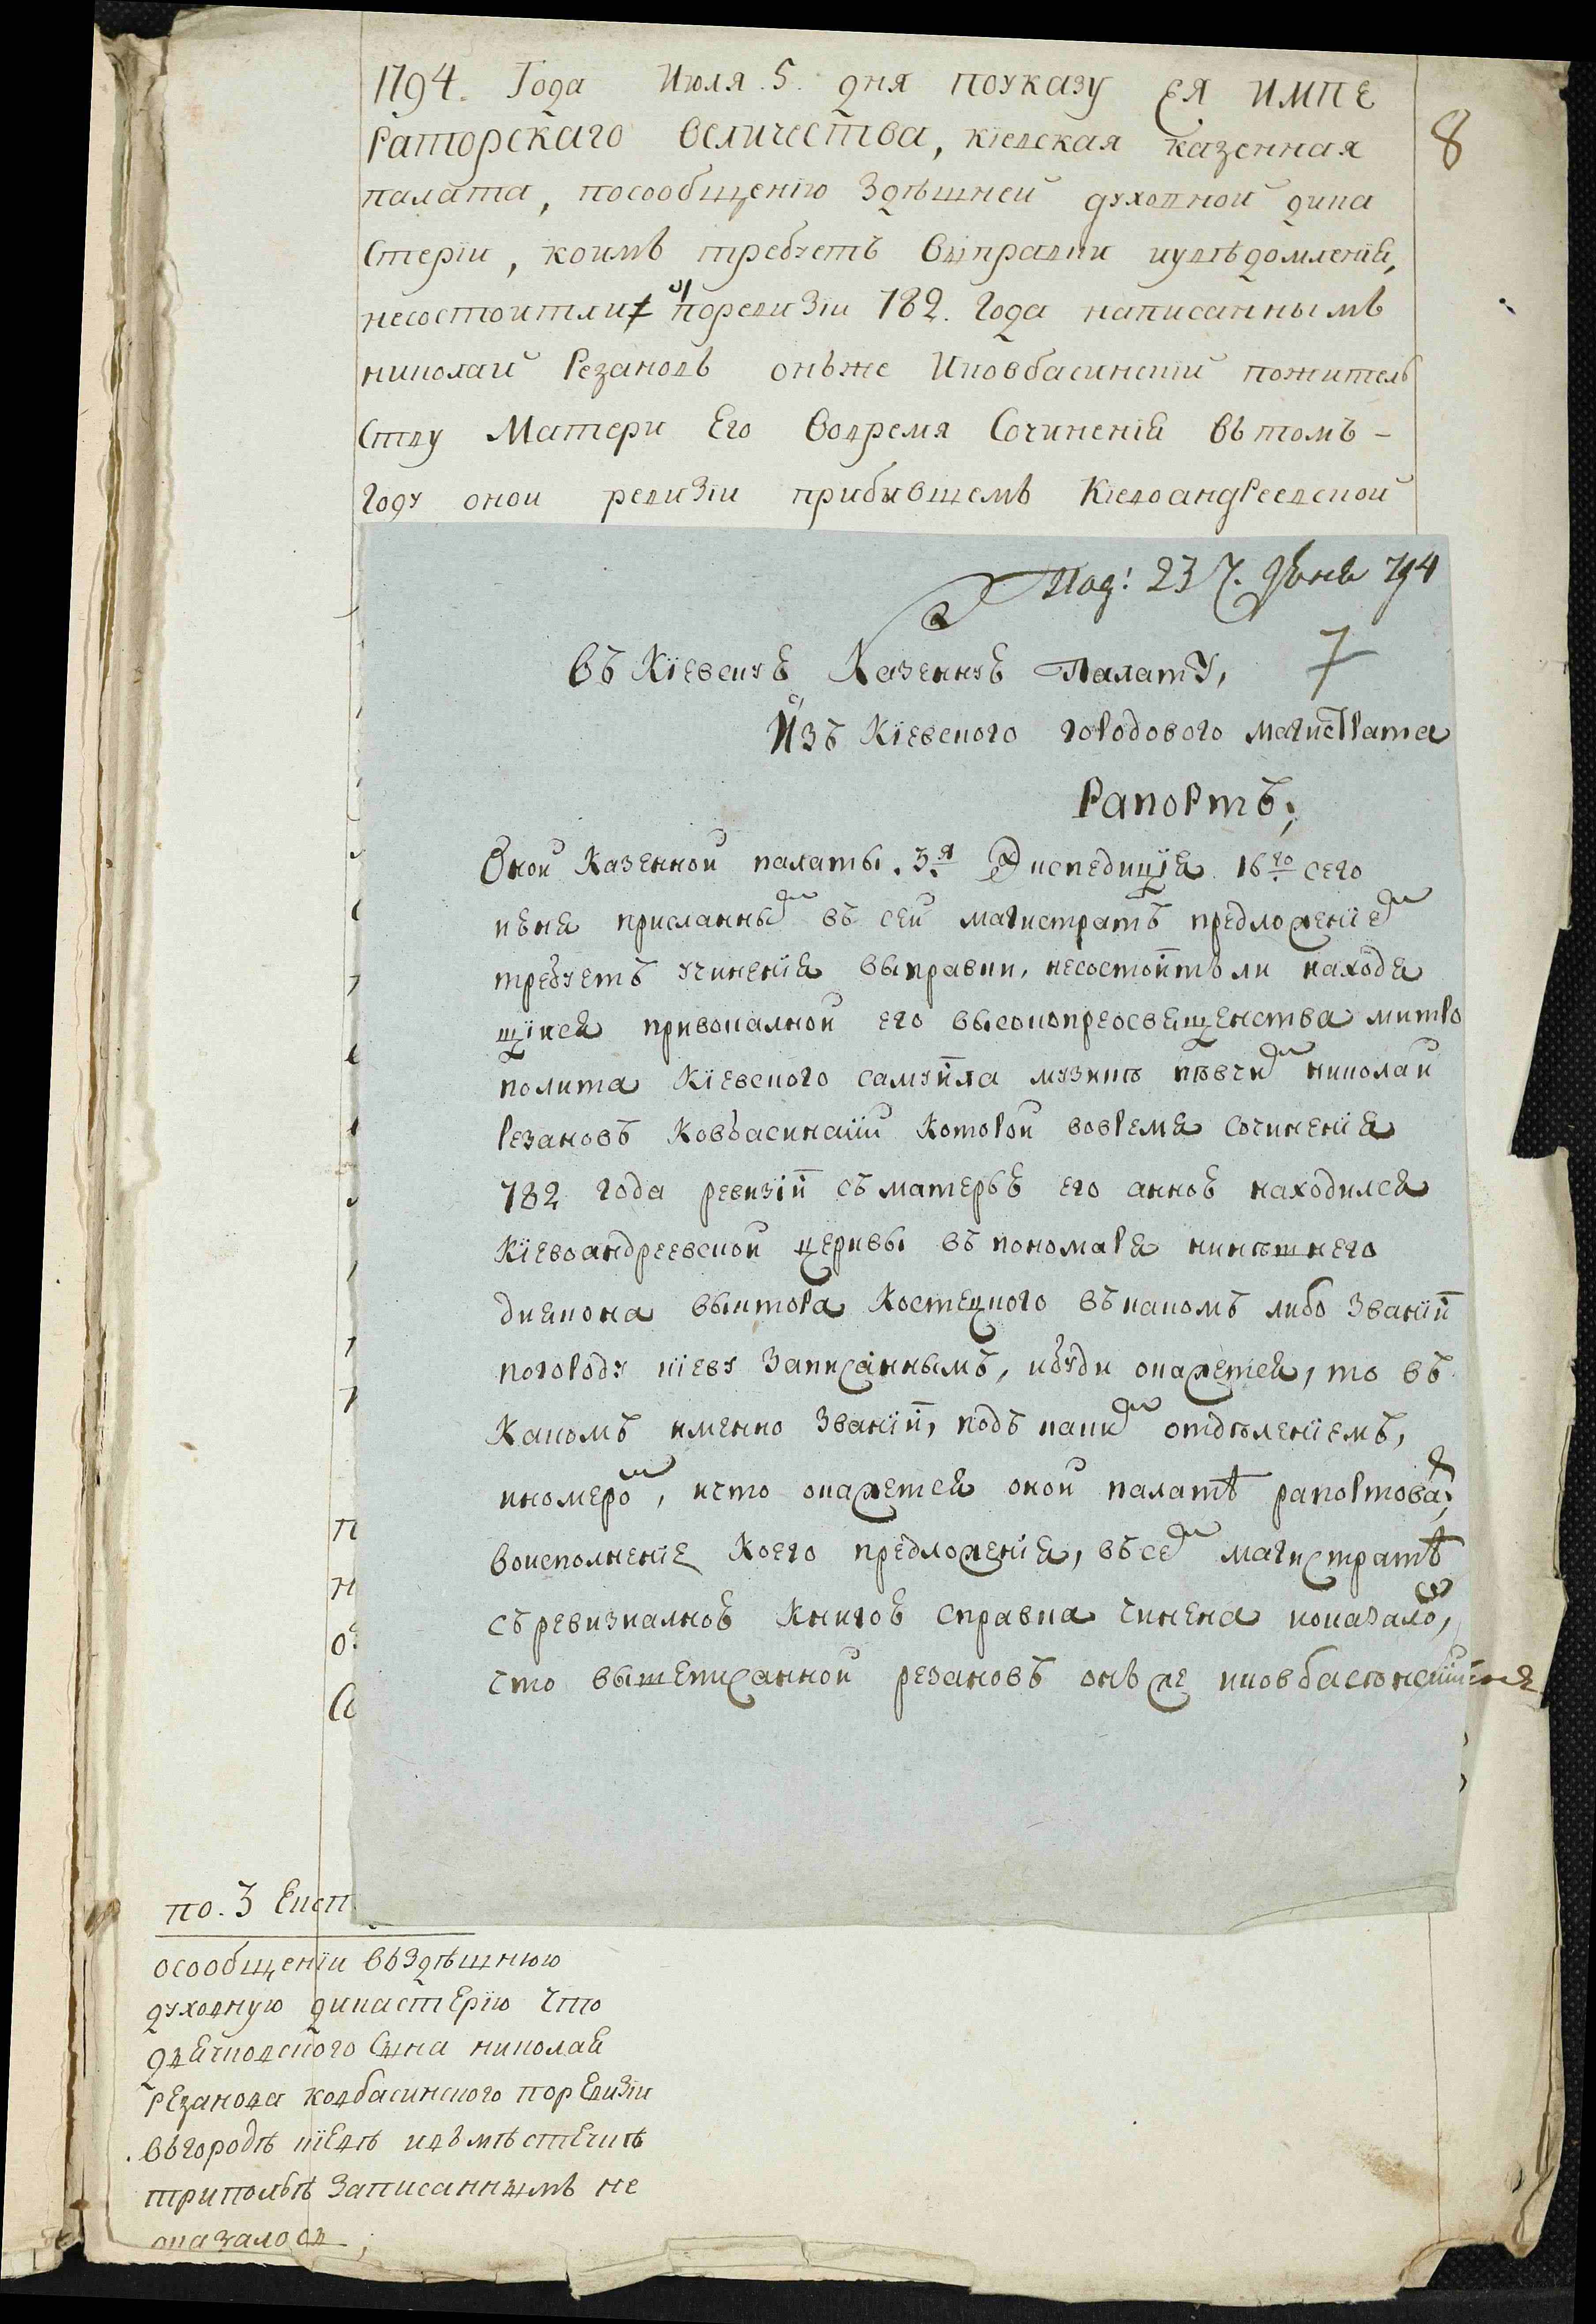 1794. Года Июля. 5. дня поуказу ЕЯ ИМПЕ
Раторскаго величества, кіевская казенная
палата, посообщенію здѣшней духовной дика
стеріи, коимъ требуетъ выправки иувѣдомленія,
несостоитли поревизіи 782. года написаннымъ
николай Резановъ онъже Иковбасинскій пожитель
ству Матери Его вовремя Сочиненія въ томъ-
году оной ревизіи прибывшемъ Кіевоандреевской
8
Под: 23 Июня 794
въ Кіевскую Казенную Палату,
7
Изъ Кіевского городового магистрата
Рапортъ;
Оной Казенной палаты. 3.я Экспедиція 16го сего
июня присланным въ сей магистратъ предложением
требуетъ учиненія выправки, несостоитъ ли находя
щійся привокалной его высокопреосвященства митро
полита Кіевского самуйла музикѣ пѣвчим николай
Резановъ Ковбасинскій Которой вовремя сочиненія
782 года ревизій съ матерью его анною находился
Кіевоандреевской церквы въ пономаря нинѣшнего
диякона выктора Костецкого въ какомъ либо званій
погороду кіеву записаннымъ, ибуди окажется, то въ
Какомъ именно званій, подъ каким отдѣленіемъ,
иномером, ичто окажется оной палатѣ рапортовать;
воисполненіе Коего предложенія, въ сем магистратѣ
съ ревизиалною книгою справка чинена ипоказалось,
что вышеписанной резановъ онъ же иковбасѣнскій не
п
н
Со
по. 3 Експ.
осообщеніи въздѣшнюю
духовную дикастерію что
дьячковского сына николая
Резанова ковбасинского поревизіи
въгородѣ кіевѣ ивъ мѣстечкѣ
трипольѣ записаннымъ не
оказалось;